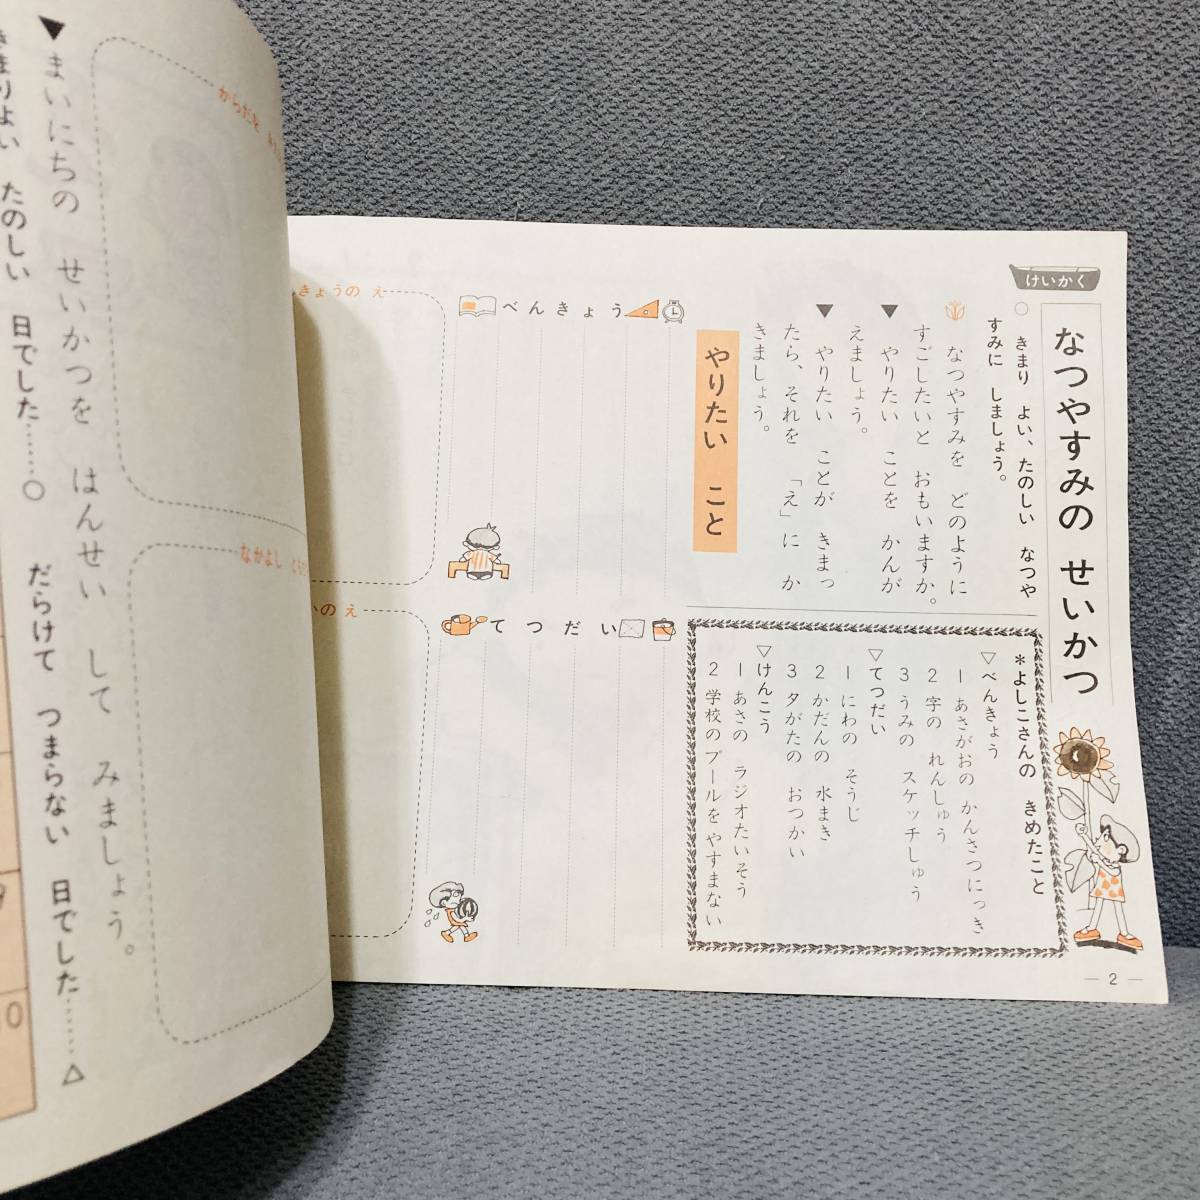 けいかく
なつやすみの せいかつ
○ きまり よい、たのしい なつや
すみに しましょう。
なつやすみを どのように
すごしたいと おもいますか。
▼ やりたい ことを かんが
えましょう。
▼ やりたい ことが きまっ
たら、それを 「え」に か
きましょう。
やりたい こと
*よしこさんの きめたこと
▽べんきょう
1 あさがおの かんさつにっき
2 字の れんしゅう
3 うみの スケッチしゅう
▽てつだい
1 にわの そうじ
2 かだんの 水まき
3 夕がたの おつかい
▽けんこう
1 あさの ラジオたいそう
2 学校のプールをやすまない
べんきょう
てつだい
きょうの え
いの え
— 2 —
からだを
なかよし
▼まいにちの せいかつを はんせい して みましょう。
きまりよい たのしい 日でした……○
だらけて つまらない 日でした……△
9
10